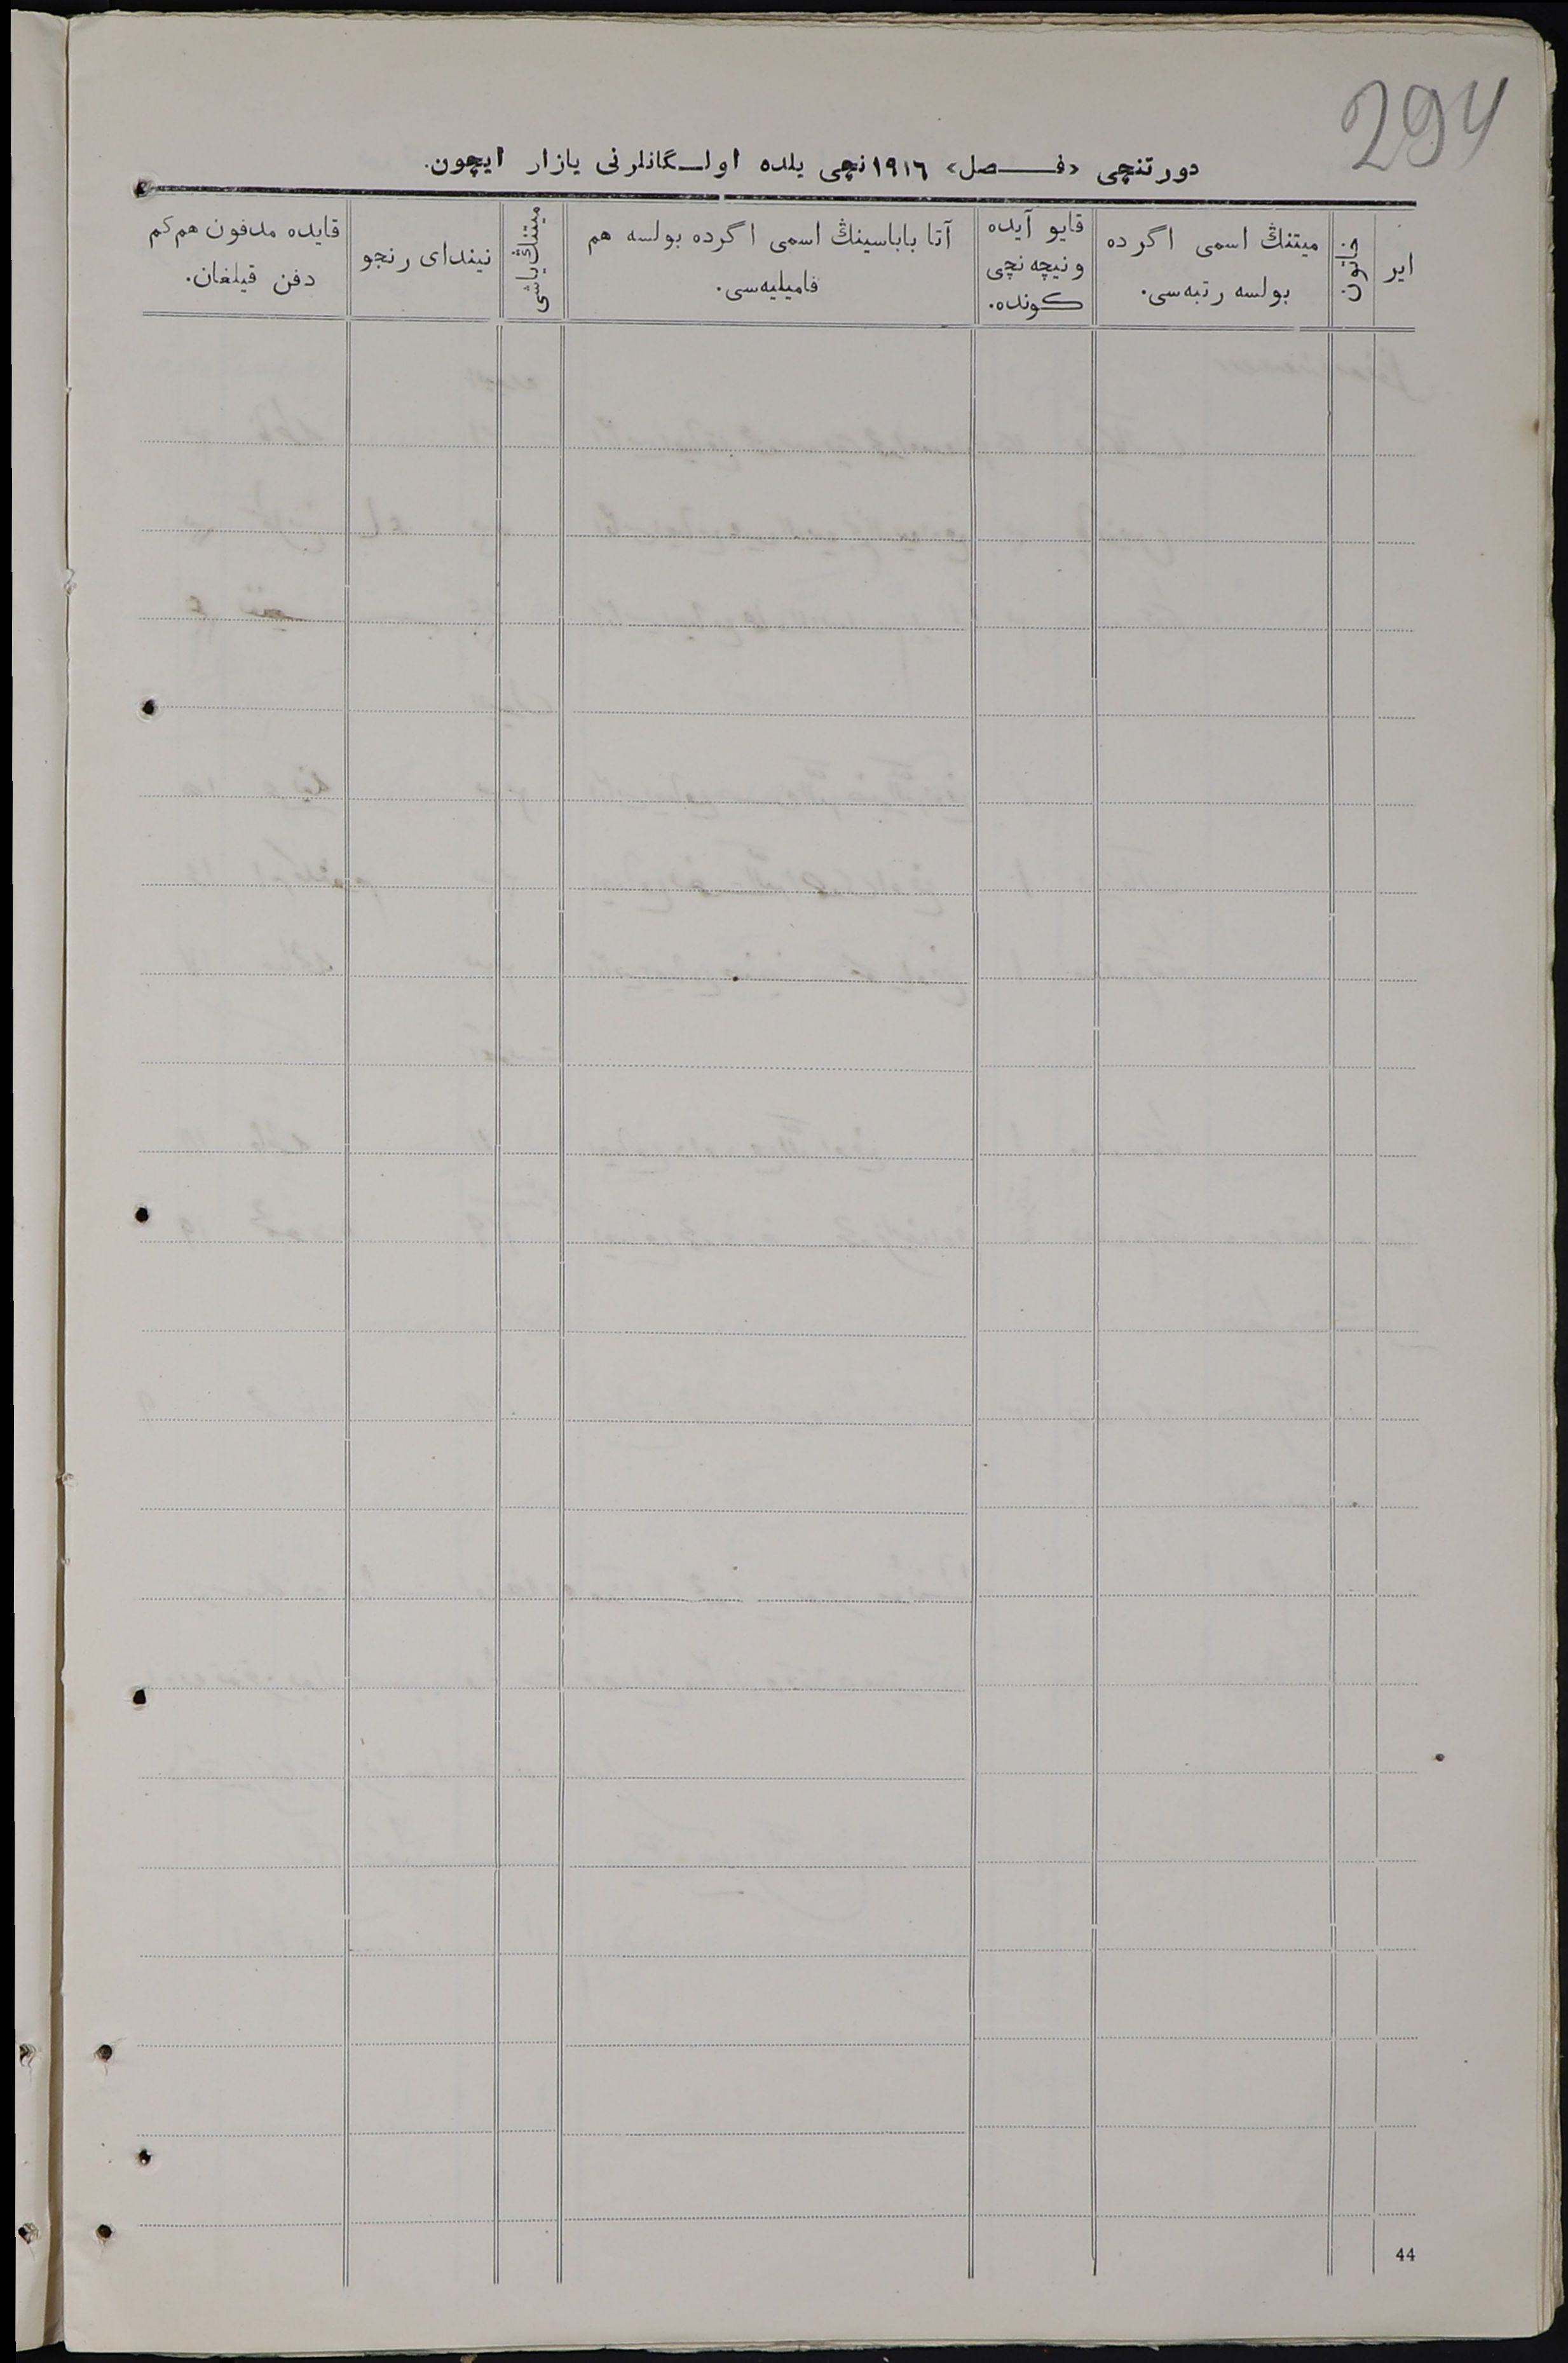 294
دورتنچی «فـــصل» ١٩١٦نچی یلده اولـگانلرنی یازار ایچون.
ایر
خاتون
میتنڭ اسمی اگرده
بولسه رتبه‌سی.
قایو آیده
و نیچه نچی
کونده.
آتا باباسینڭ اسمی اگرده بولسه هم
فامیلیه‌سی.
میتنڭ یاشی
نیندای رنجو
قایده مدفون هم کم
دفن قیلغان.
44